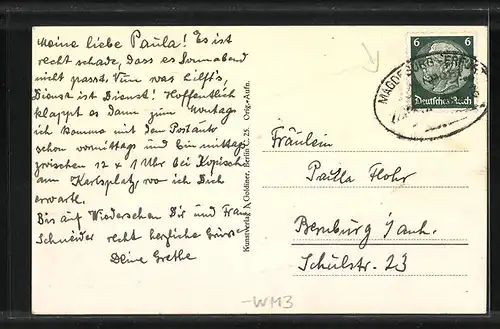 Meine liebe Paula! Es ist
recht schade, dass es Sonnabend
nicht passt. Nun was hilft's,
Dienst ist Dienst! Hoffentlich
klappt es dann zum Montag
ich komme mit dem Postauto
schon vormittags und bin mittags
zwischen 12 & 1 Uhr bei Kopisch
am Karlsplatz, wo ich Dich
erwarte.
Bis auf Wiedersehen Dir und Frau
Schneider recht herzliche Grüsse
Deine Grethe
Kunstverlag A. Goldiner, Berlin C. 25. Orig.-Aufn.
6 6
Deutsches Reich
MAGDEBURG
Fräulein
Paula Flohr
Bernburg / Anh.
Schulstr. 23
-WM3